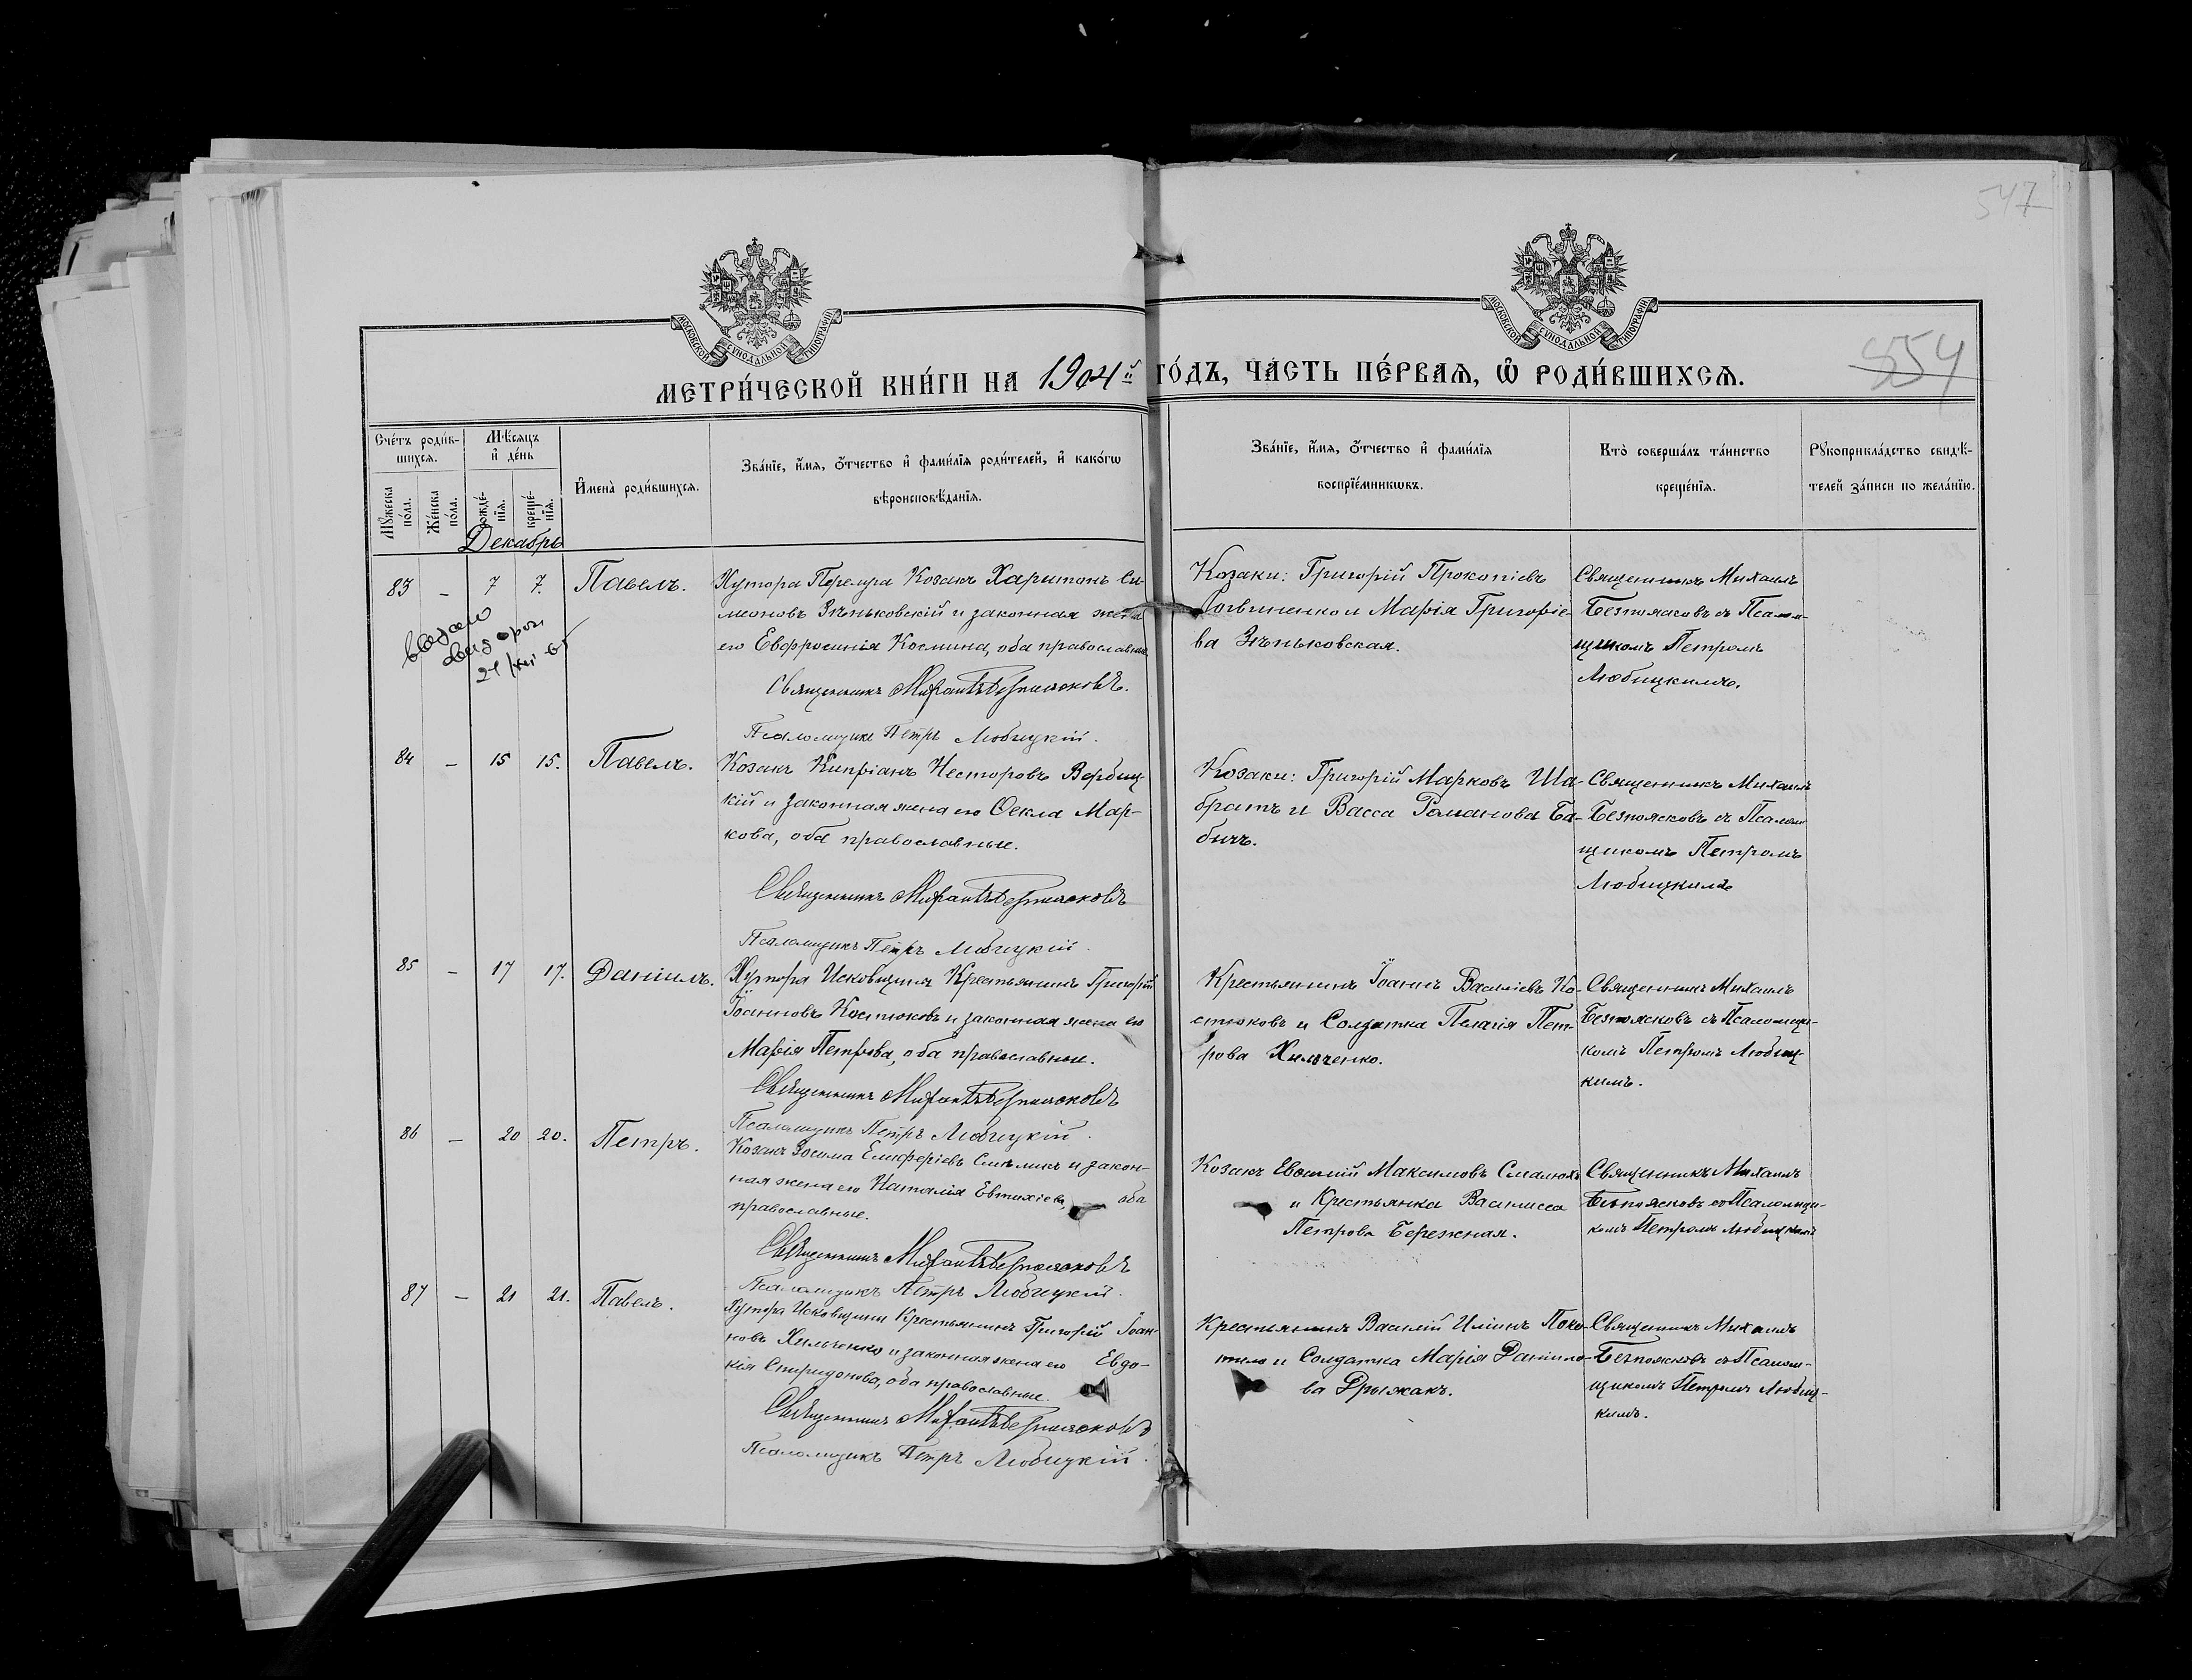 547
МОСКОВСКОЙ СѴНОДАЛЬНОЙ ТИПОГРАФІИ
МОСКОВСКОЙ СѴНОДАЛЬНОЙ ТИПОГРАФІИ
554
МЕТРИ́ЧЕСКОЙ КНИ́ГИ НА 1904й ГО́ДЪ, ЧА́СТЬ ПЕ́РВАЯ, Ѡ РОДИ́ВШИХСЯ.
Сче́тъ роди́в-
шихся.
Мѣ́сяцъ
и де́нь
Мꙋ́жеска
по́ла.
Же́нска
по́ла.
рожде́-
нїя.
креще́-
нїя.
Имена̀ роди́вшихся.
Зва́нїе, и́мя, о́тчество и фами́лїя роди́телей, и како́гѡ
вѣроисповѣ́данїя.
Зва́нїе, и́мя, о́тчество и фами́лїя
воспрїе́мникѡвъ.
Кто̀ соверша́лъ та́инство
креще́нїя.
Рꙋкоприкла́дство свидѣ́-
телей за́писи по жела́нїю.
Декабрь
83 – 7 7. Павелъ.
Хутора Перелуга Козакъ Харитонъ Си-
меоновъ Зѣньковскій и законная жена
его Евфросинія Космина, оба православные
Священникъ Михаилъ Безпоясковъ.
Псаломщикъ Петръ Любицкій.
Козаки: Григорій Прокопіевъ
и Марія Григоріе-
ва Зѣньковская.
Священникъ Михаилъ
Безпоясковъ съ Псалом-
щикомъ Петромъ
Любицкимъ.
84 – 15 15. Павелъ.
Козакъ Кипріанъ Несторовъ Вербиц-
кій и законная жена его Ѳекла Мар-
кова, оба православные.
Священникъ Михаилъ Безпоясковъ
Псаломщикъ Петръ Любицкій.
Козаки: Григорій Марковъ Ша-
братъ и Васса Романова Ба-
бичъ.
Священникъ Михаилъ
Безпоясковъ съ Псалом
щикомъ Петромъ
Любицкимъ
85 – 17 17. Даніилъ.
Хутора Исковщина Крестьянинъ Григорій
Іоанновъ Костюковъ и законная жена его
Марія Петрова, оба православные.
Священникъ Михаилъ Безпоясковъ
Псаломщикъ Петръ Любицкій.
Крестьянинъ Іоаннъ Василіевъ Ко-
стюковъ и Солдатка Пелагія Пет-
рова Хильченко.
Священникъ Михаилъ
Безпоясковъ съ Псаломщи-
комъ Петромъ Любиц-
кимъ.
86 – 20 20. Петръ.
Козакъ Зосима Елифѳеріевъ и закон-
ная жена его Наталія Евтихіева, оба
православные.
Священникъ Михаилъ Безпоясковъ
Псаломщикъ Петръ Любицкій.
Козакъ Максимовъ
и Крестьянка Василисса
Петрова Бережная.
Священникъ Михаилъ
Безпоясковъ съ Псаломщи-
комъ Петромъ Любицкимъ
87 – 21 21. Павелъ.
Хутора Исковщины Крестьянинъ Григорій Іоан-
новъ Хильченко и законная жена его Евдо-
кія Спиридонова, оба православные.
Священникъ Михаилъ Безпоясковъ
Псаломщикъ Петръ Любицкій.
Крестьянинъ Василій Иліинъ Поко-
тило и Солдатка Марія Даніило-
ва Дрыжакъ.
Священникъ Михаилъ
Безпоясковъ съ Псалом-
щикомъ Петромъ Любиц-
кимъ.